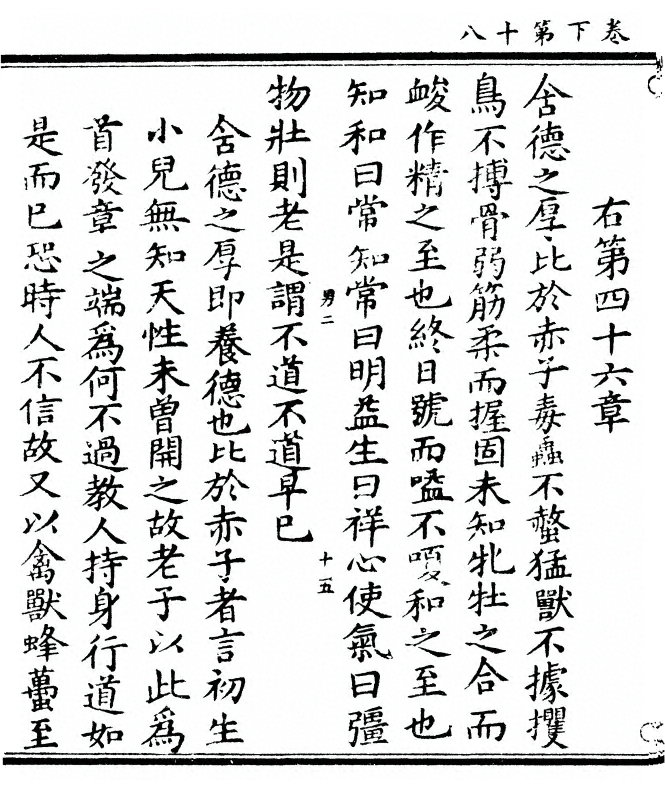 卷下第十八
右第四十六章
含德之厚比於赤子毒蟲不螫猛獸不據攫
鳥不搏骨弱筋柔而握固未知牝牡之合而
䘒作精之至也終日號而嗌不嗄和之至也
知和曰常知常曰明益生曰祥心使氣曰彊
物壯則老是謂不道不道早已
男二
十五
含德之厚即養德也比於赤子者言初生
小兒無知天性未曾開之故老子以此爲
首發章之端爲何不過教人持身行道如
是而已恐時人不信故又以禽獸蜂蠆至